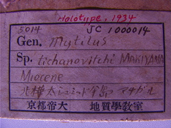 Holotype, 1934
5014 JC 1000014
Gen. Mytilus
Sp. tichanovitchi MAKIYAMA
Miocene
京都帝大 地質學教室